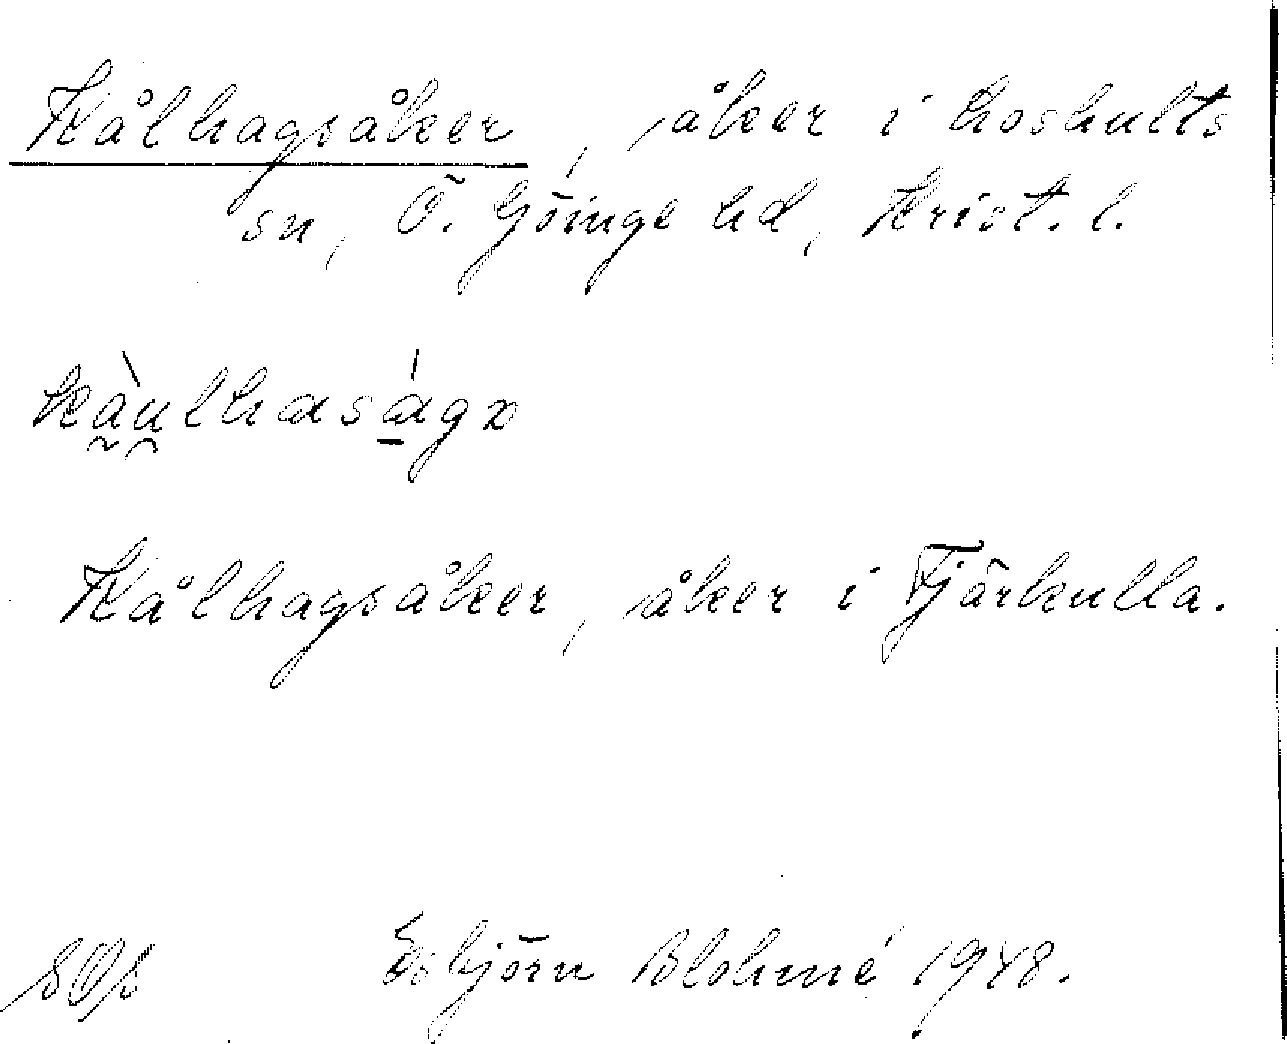 Kålhagsåker, åker i Loshults
sn, Ö. Göinge hd, Krist. l.
kàulhaságx
Kålhagsåker, åker i Tjärkulla.
Esbjörn Blohmé 1948.